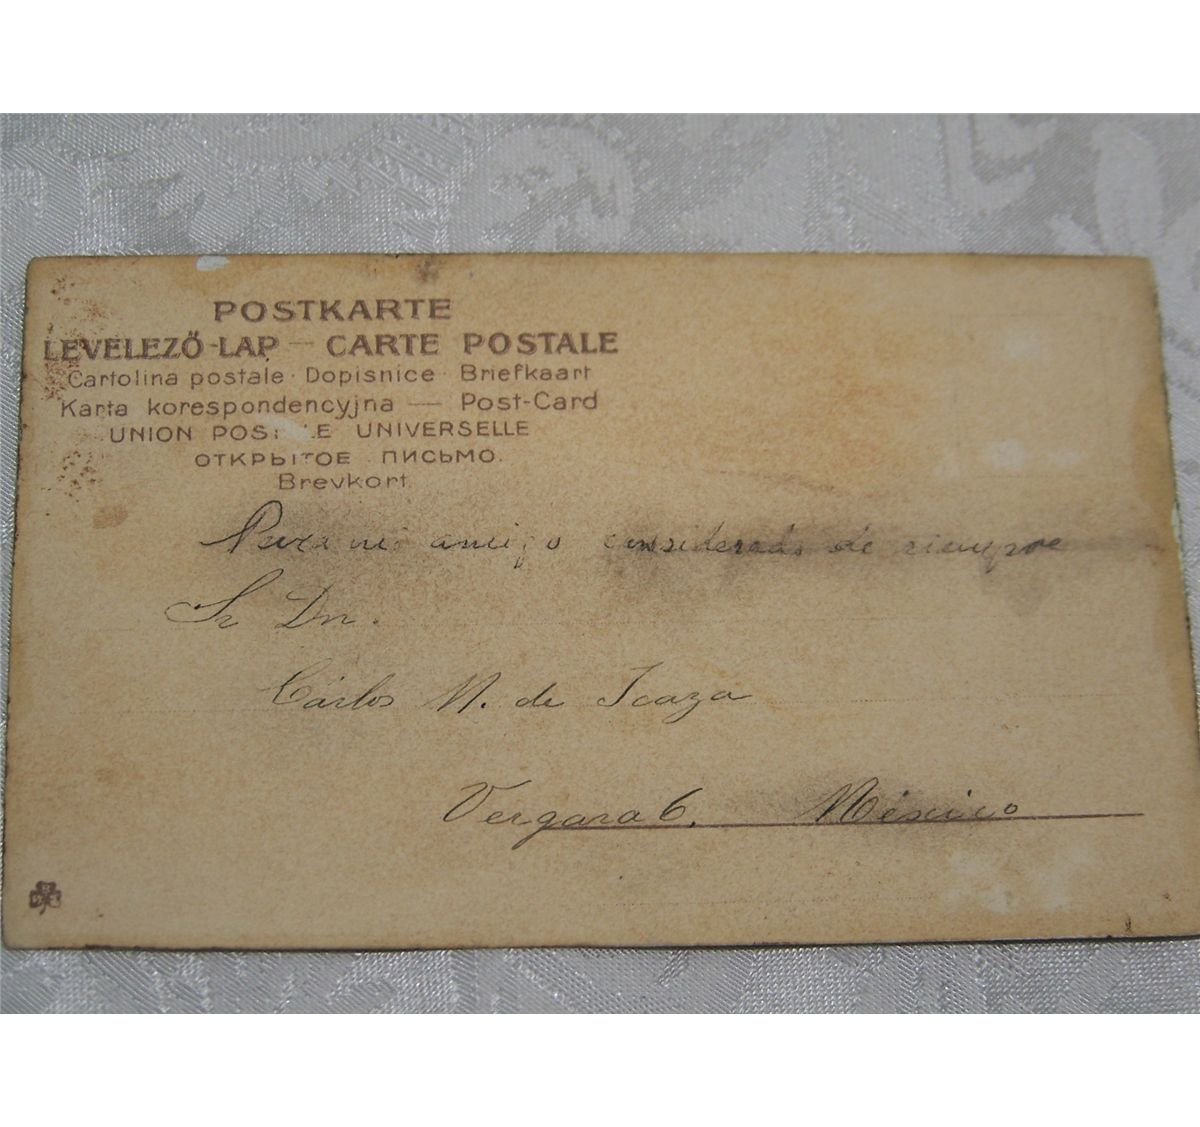 POSTKARTE
LEVELEZŐ-LAP — CARTE POSTALE
Cartolina postale · Dopisnice · Briefkaart
Karta korespondencyjna — Post-Card
UNION POSTALE UNIVERSELLE
ОТКРЫТОЕ ПИСЬМО.
Brevkort
Para mi amigo considerado de siempre
Sr Dn.
Cárlos N. de Icaza
Vergara 6. México